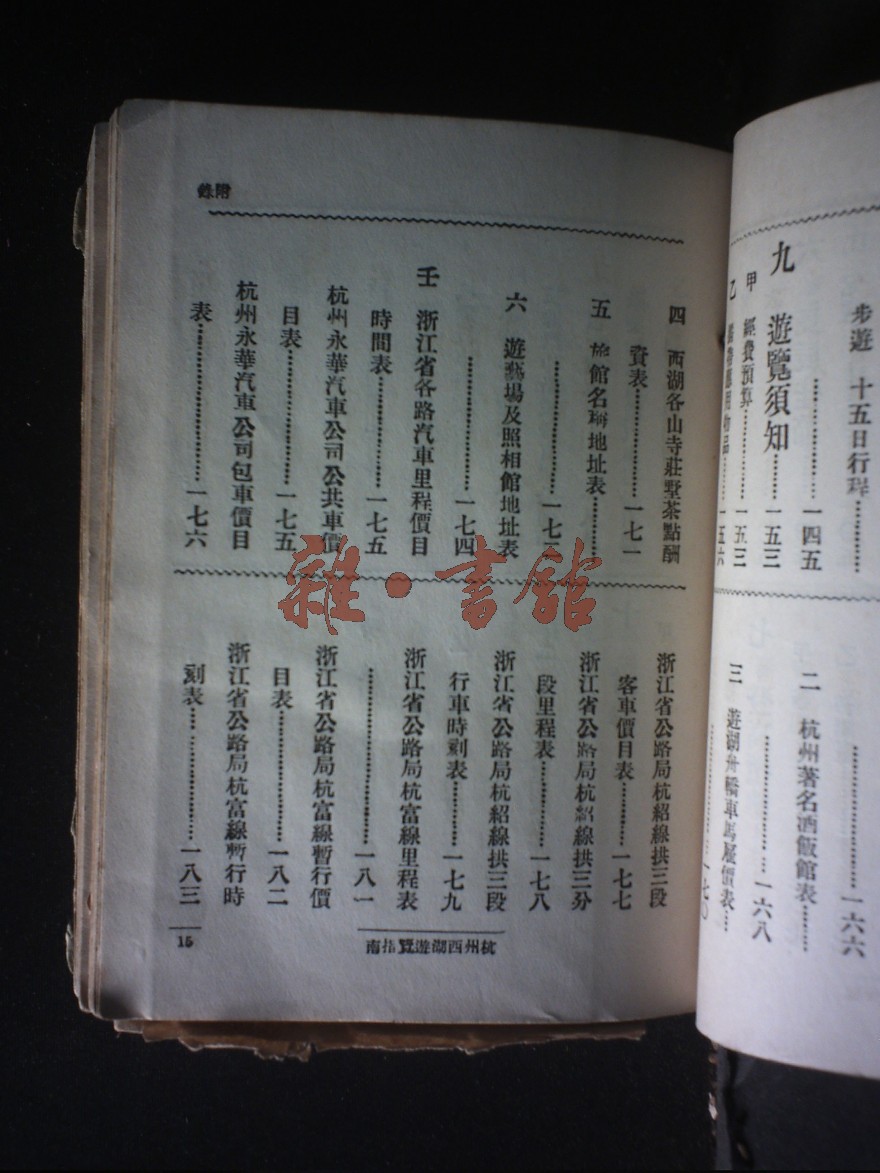 步遊　十五日行程…………
……………一四五
九　遊覽須知……一五三
甲　經費預算…………一五三
一五六
……………………一六六
二　杭州著名酒飯館表……
…………………一六八
三　遊湖舟轎車馬雇價表…
…………………一七〇
附錄
四　西湖各山寺莊墅茶點酬
資表……………一七一
五　旅館名稱地址表………
……………………一七三
六　遊藝場及照相館地址表
……………………一七四
壬　浙江省各路汽車里程價目
時間表……………一七五
杭州永華汽車公司公共車價
目表………………一七五
杭州永華汽車公司包車價目
表…………………一七六
浙江省公路局杭紹線拱三段
客車價目表………一七七
浙江省公路局杭紹線拱三分
段里程表…………一七八
浙江省公路局杭紹線拱三段
行車時刻表………一七九
浙江省公路局杭富線里程表
……………………一八一
浙江省公路局杭富線暫行價
目表………………一八二
浙江省公路局杭富線暫行時
刻表………………一八三
杭州西湖遊覽指南
15
雜·書館